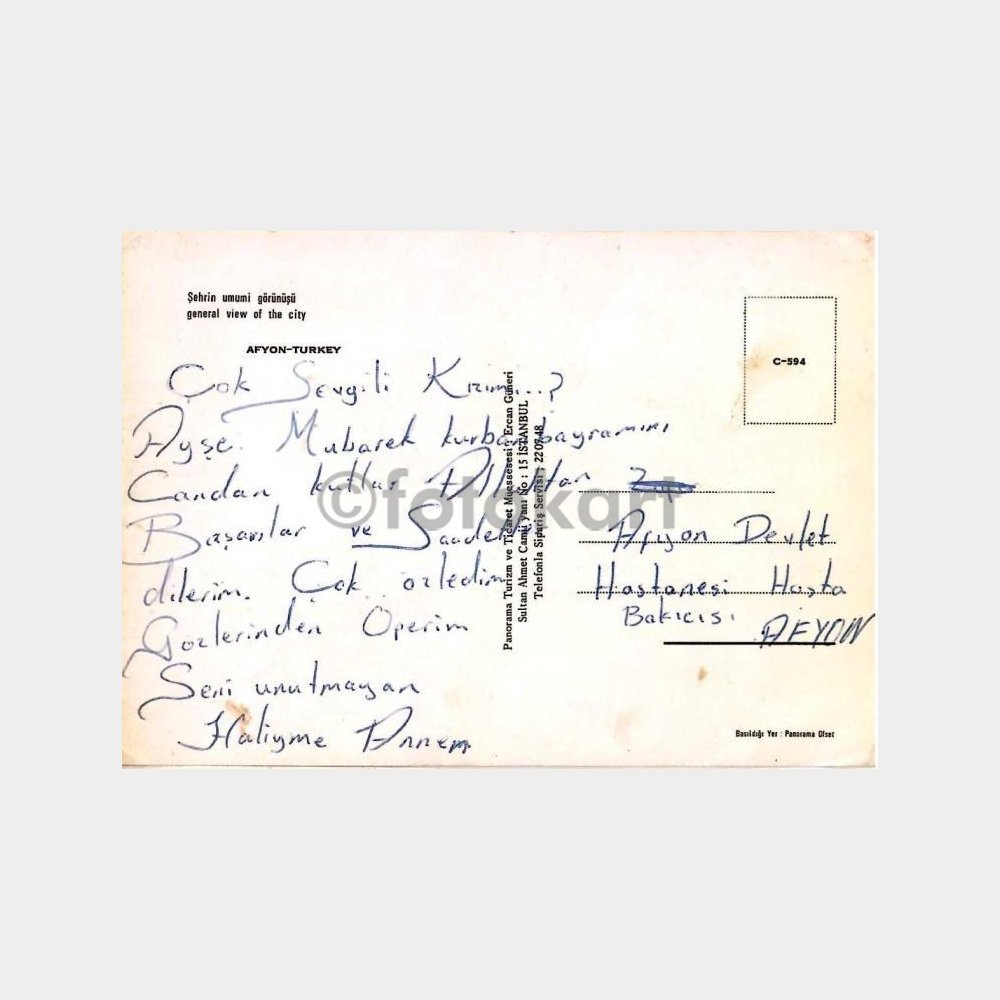 Şehrin umumi görünüşü
general view of the city
AFYON-TURKEY
Çok Sevgili Kızım...?
Ayşe. Mubarek kurban bayramını
Candan kutlar Allahtan
Başarılar ve Saadet
dilerim. Çok özledim
Gözlerinden Öperim
Seni unutmayan
Haliyme Annem
Panorama Turizm ve Ticaret Muessesesi : Ercan Güneri
Sultan Ahmet Camii yanı No : 15 İSTANBUL
Telefonla Sipariş Servisi : 22 07 48
C-594
Afyon Devlet
Hastanesi Hasta
Bakıcısı
AFYON
Basıldığı Yer : Panorama Ofset
©fotokart